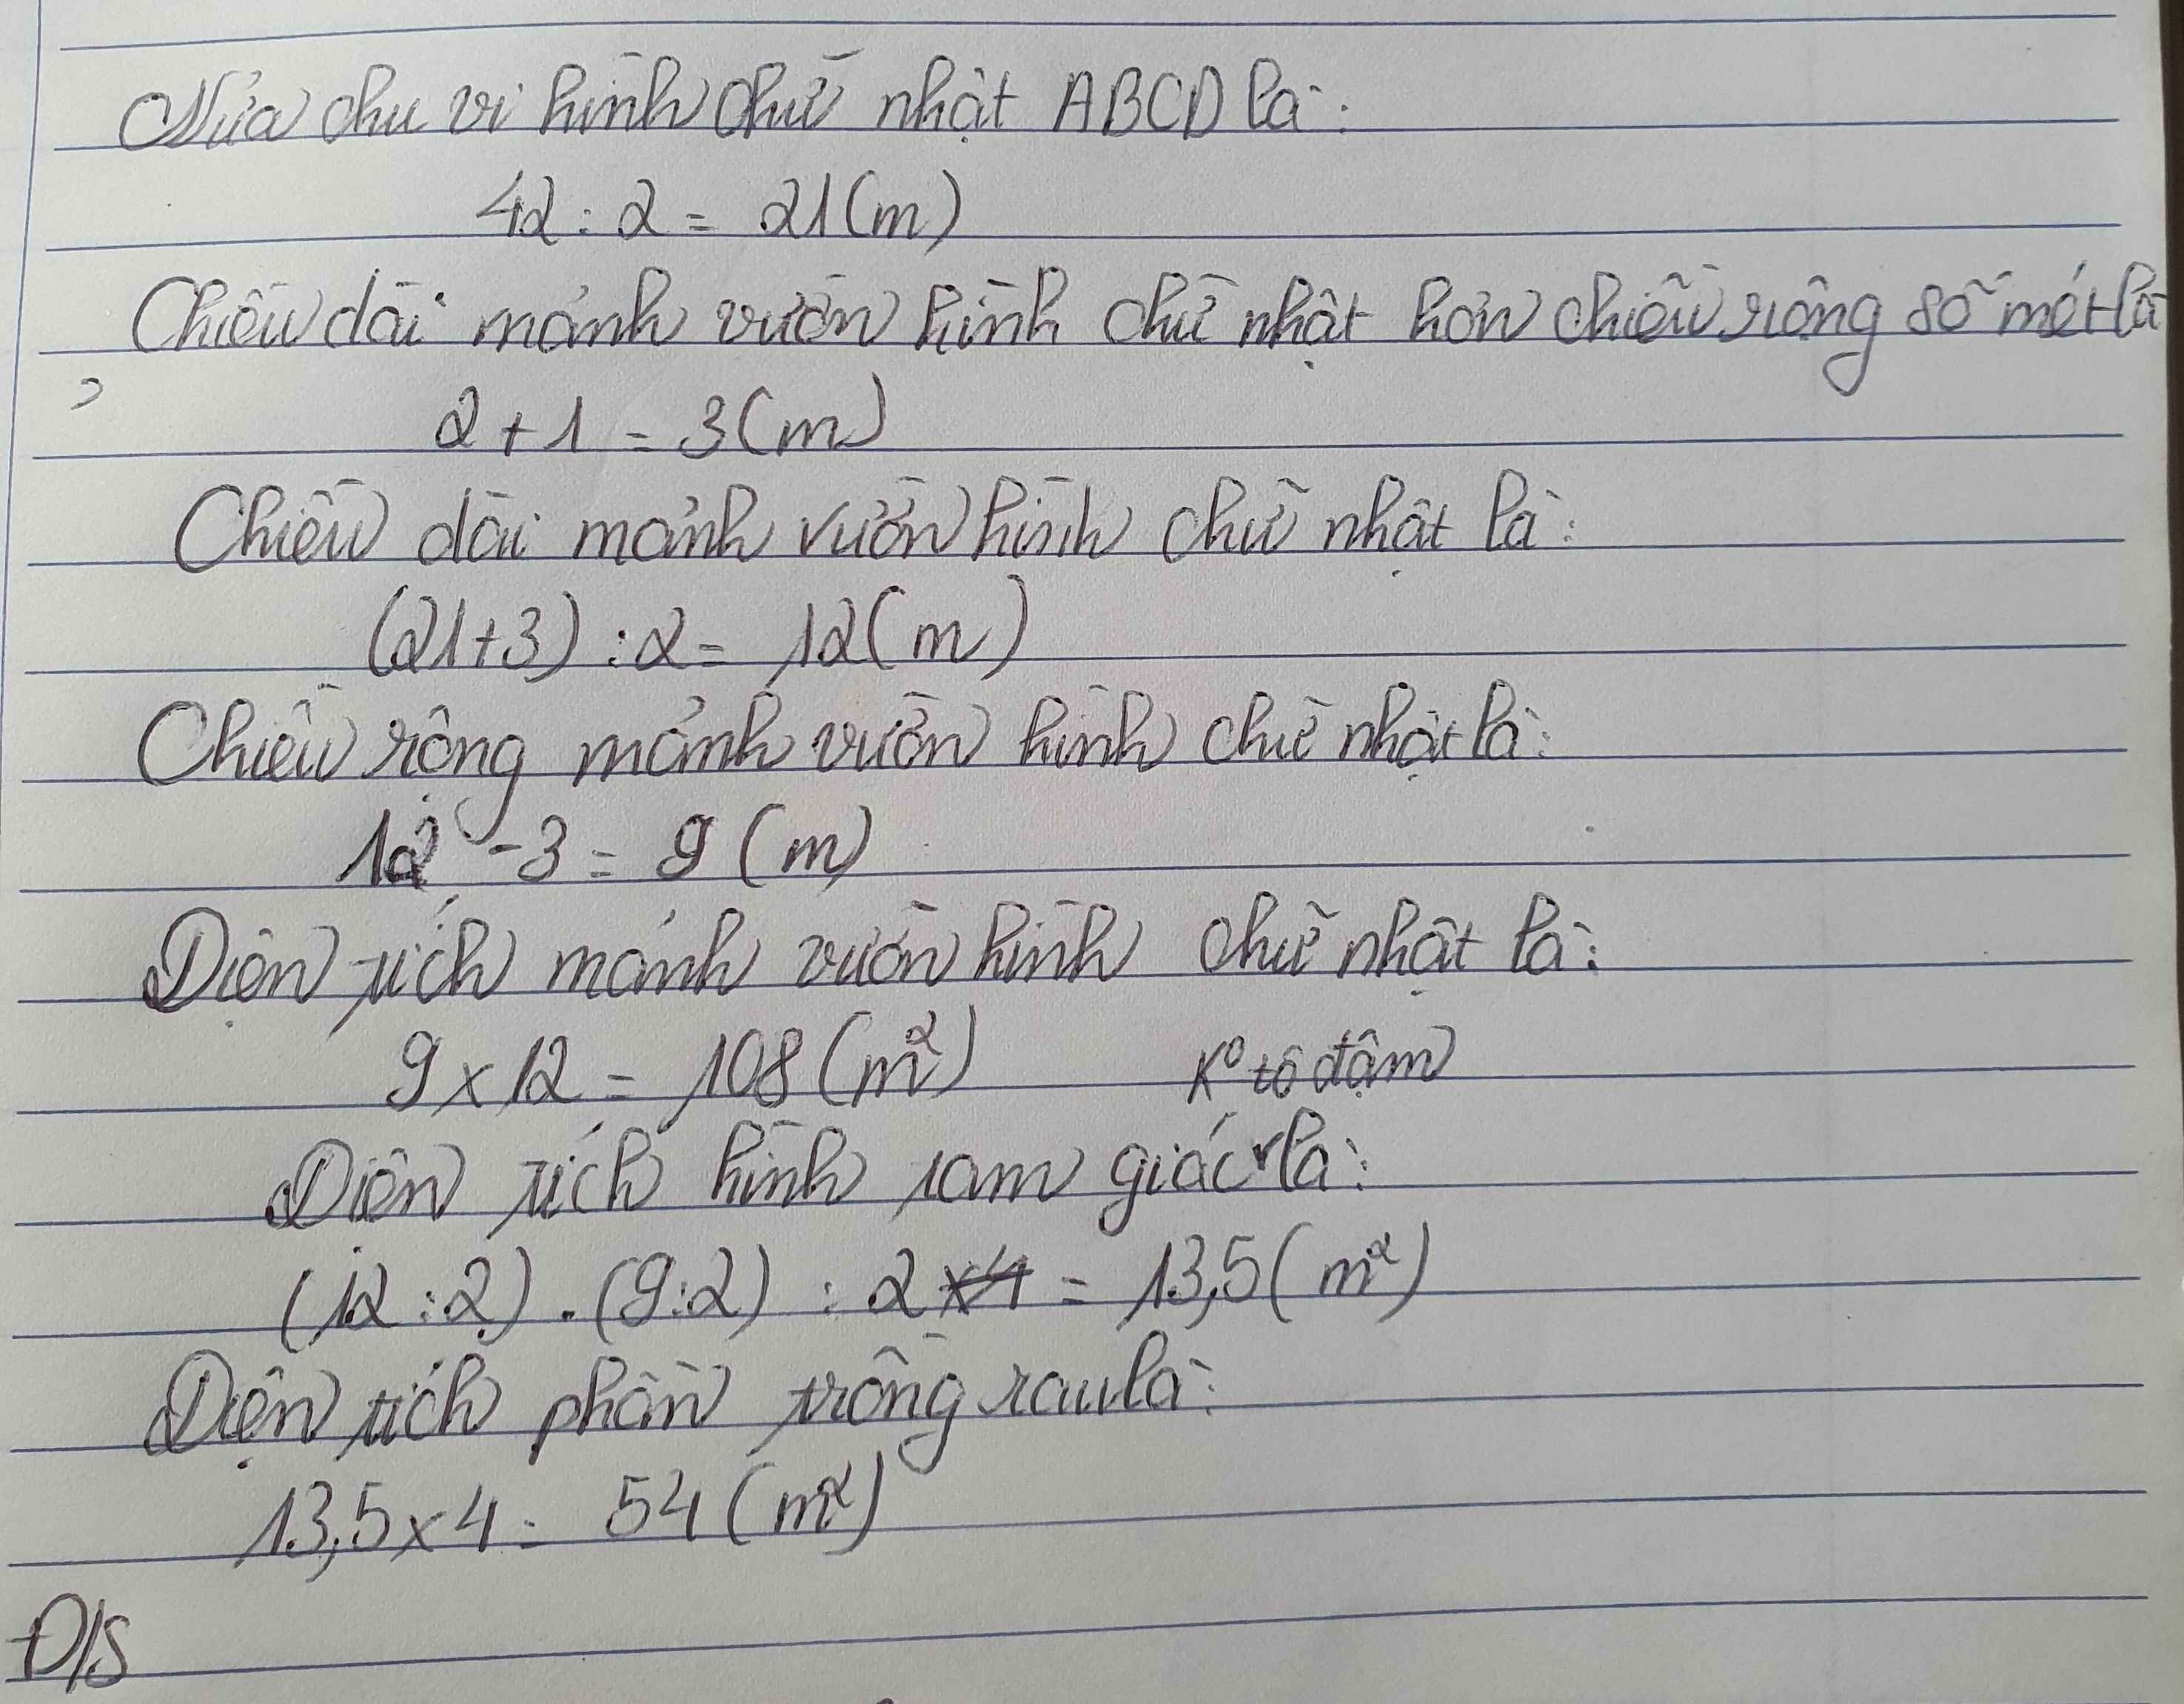 Nửa chu vi hình chữ nhật ABCD là:
42 : 2 = 21(m)
Chiều dài mảnh vườn hình chữ nhật hơn chiều rộng số mét là
2 + 1 = 3(m)
Chiều dài mảnh vườn hình chữ nhật là:
(21+3) : 2 = 12(m)
Chiều rộng mảnh vườn hình chữ nhật là:
12 - 3 = 9 (m)
Diện tích mảnh vườn hình chữ nhật là:
9 x 12 = 108 (m²)
K° tô đậm
Diện tích hình tam giác là:
(12 : 2) . (9:2) : 2 x4 = 13,5 (m²)
Diện tích phần trồng rau là:
13,5 x 4 = 54 (m²)
Đ/S